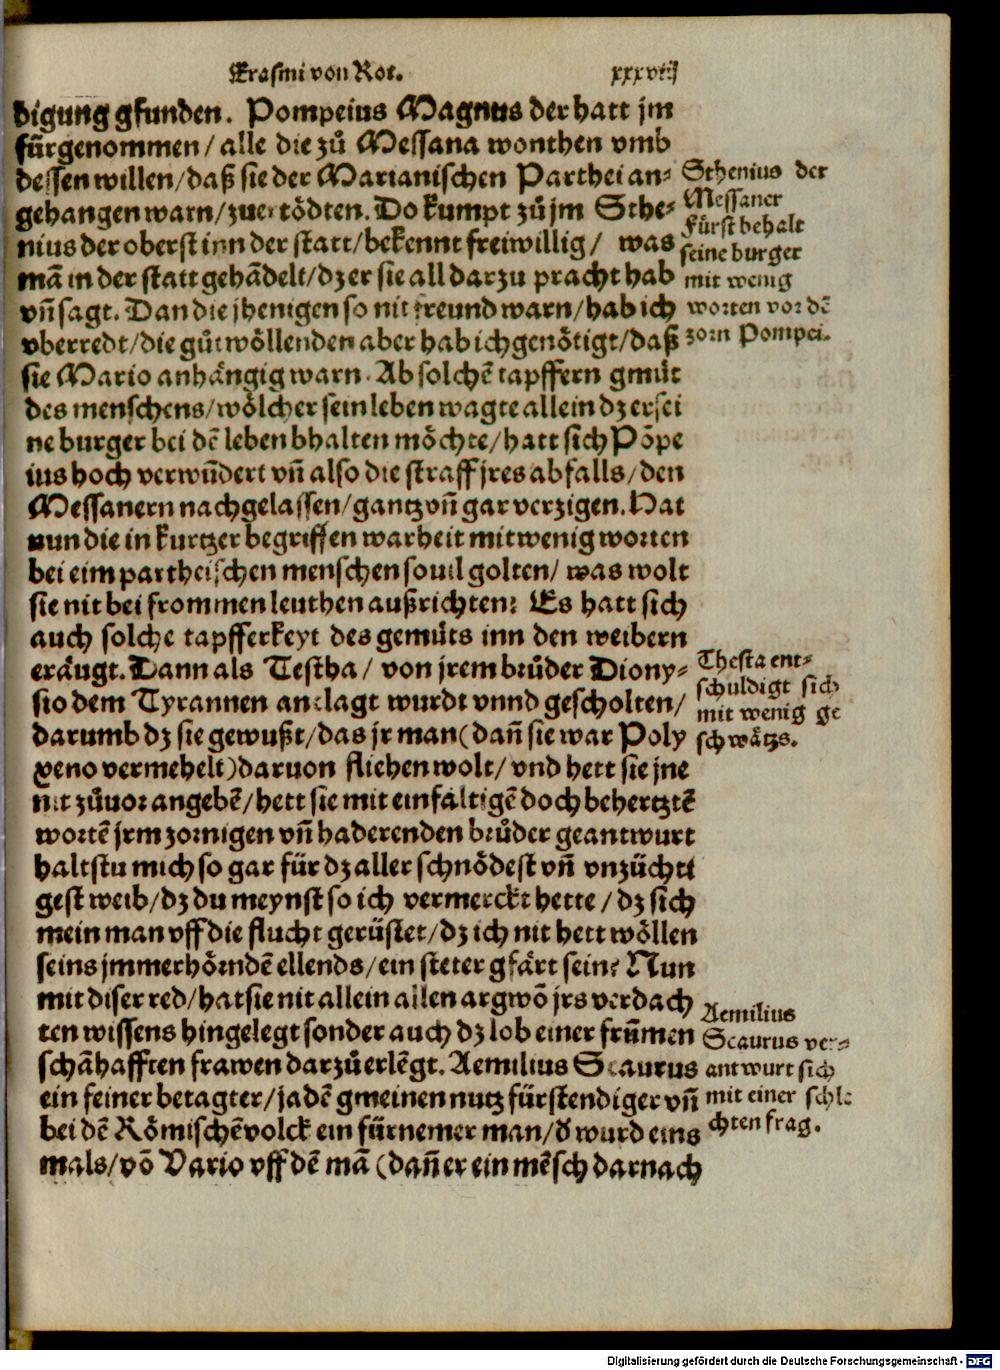 Erasmi von Rot. xxxviij
digung gfunden. Pompeius Magnus der hatt jm
fürgenommen / alle die zů Messana wonthen vmb
dessen willen / daß sie der Marianischen Parthei an⸗
gehangen warn / zuertödten. Do kumpt zů jm Sthe⸗
nius der oberst inn der statt / bekennt freiwillig / was
mā in der statt gehādelt / dz er sie all darzu pracht hab
vn̄ sagt. Dan die jhenigen so nit freund warn / hab ich
vberredt / die gůtwöllenden aber hab ich genötigt / daß
sie Mario anhängig warn. Ab solchē tapffern gmůt
des menschens / wölcher sein leben wagte allein dz er sei
ne burger bei dē leben bhalten möchte / hatt sich Pōpe
ius hoch verwūdert vn̄ also die straff jres abfalls / den
Messanern nachgelassen / gantz vn̄ gar verzigen. Hat
nun die in kurtzer begriffen warheit mit wenig worten
bei eim partheischen menschen souil golten / was wolt
sie nit bei frommen leuthen außrichten? Es hatt sich
auch solche tapfferkeyt des gemůts inn den weibern
eräugt. Dann als Testha / von jrem brůder Diony⸗
sio dem Tyrannen anclagt wurdt vnnd gescholten /
darumb dz sie gewußt / das jr man (dan̄ sie war Poly
xeno vermehelt) daruon fliehen wolt / vnd hett sie jne
nit zůuor angebē / hett sie mit einfältigē doch behertztē
wortē jrm zornigen vn̄ haderenden brůder geantwurt
haltstu mich so gar für dz aller schnödest vn̄ vnzüchti
gest weib / dz du meynst so ich vermerckt hette / dz sich
mein man vff die flucht gerüstet / dz ich nit hett wöllen
seins jmmerhörndē ellends / ein steter gfärt sein? Nun
mit diser red / hat sie nit allein allen argwō jrs verdach
ten wissens hingelegt sonder auch dz lob einer frūmen
schāhafften frawen darzů erlēgt. Aemilius Scaurus
ein feiner betagter / ja dē gmeinen nutz fürstendiger vn̄
bei dē Römischē volck ein fürnemer man / d̄ wurd eins
mals / vō Vario vff dē mā (dan̄ er ein mēsch darnach
Sthenius der
Messaner
Fürst behalt
seine burger
mit wenig
worten vor dē
zorn Pompei.
Thesta ent⸗
schuldigt sich
mit wenig ge
schwätzs.
Aemilius
Scaurus ver⸗
antwurt sich
mit einer schle
chten frag.
Digitalisierung gefördert durch die Deutsche Forschungsgemeinschaft - DFG